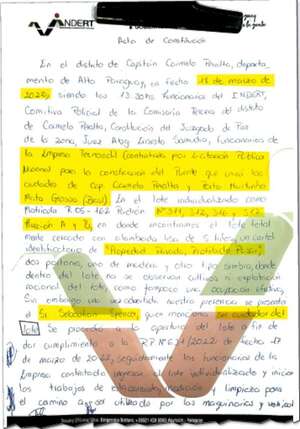 INDERT
Acta de Constitución
En el distrito de Capitán Carmelo Peralta, departa-
mento de Alto Paraguay, en fecha 18 de marzo de
2022, siendo las 13:30hs funcionarios del INDERT,
Comitiva Policial de la Comisaría Tercera del distrito
de Carmelo Peralta, Constitución del Juzgado de Paz
de la zona, Juez Abog. Ernesto, funcionarios de
la Empresa contratada por Licitación Pública
Nacional para la construcción del Puente que unirá las
ciudades de Cap. Carmelo Peralta y Porto Murtinho
Mato Grosso (Brasil). En el lote individualizado como
Matrícula R05-162 Padrón Nº 311, 312, 316 y 317
Fracción A y, en donde encontramos el lote total
mente cercado con alambrada liso de 5 hilos, un cartel
identificatorio de "Propiedad Privada, Prohibido Pasar",
dos portones, uno de madera y otro, dentro
del lote no se observan cultivos ni explotación
racional del lote como tampoco una ocupación efectiva,
Sin embargo una vez advertida nuestra presencia se presenta
el Sr. Sebastián, quien menciona ser cuidador del
lote. Se procedió a la apertura del lote a fin de
dar cumplimiento a la RP Nº 631/2022 de fecha 17
de marzo de 2022, seguidamente los funcionarios de la
Empresa contratada ingresa al lote individualizado y inician
los trabajos de medición limpieza para
el camino a ser utilizado por las maquinarias y vehícul